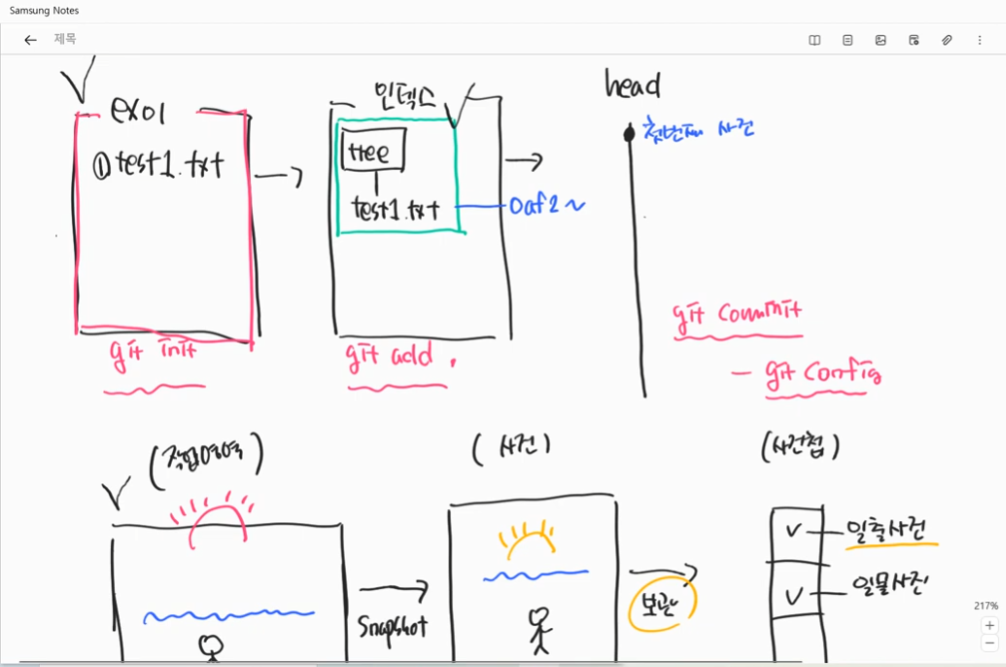 Samsung Notes
제목
ex01
① test1.txt
git init
인덱스
tree
test1.txt
0af2~
git add .
head
첫번째 사진
git commit
- git config
(작업영역)
(사진)
(사진첩)
Snapshot
보관
일출사진
일몰사진
217%